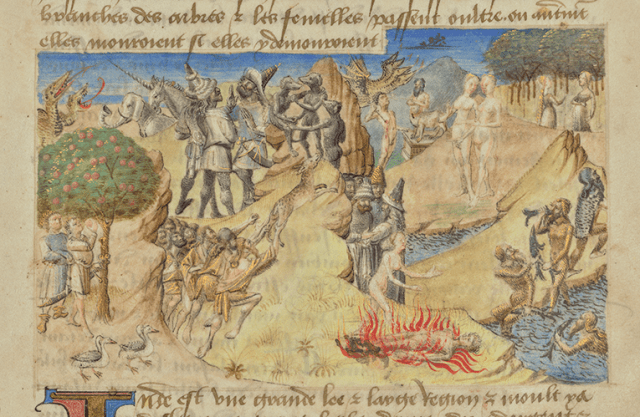 branches des arbres & les femelles passent oultre. ou autremt
elles mourroient se elles y demouroient
Inde est vne grande lee & large region & moult pa